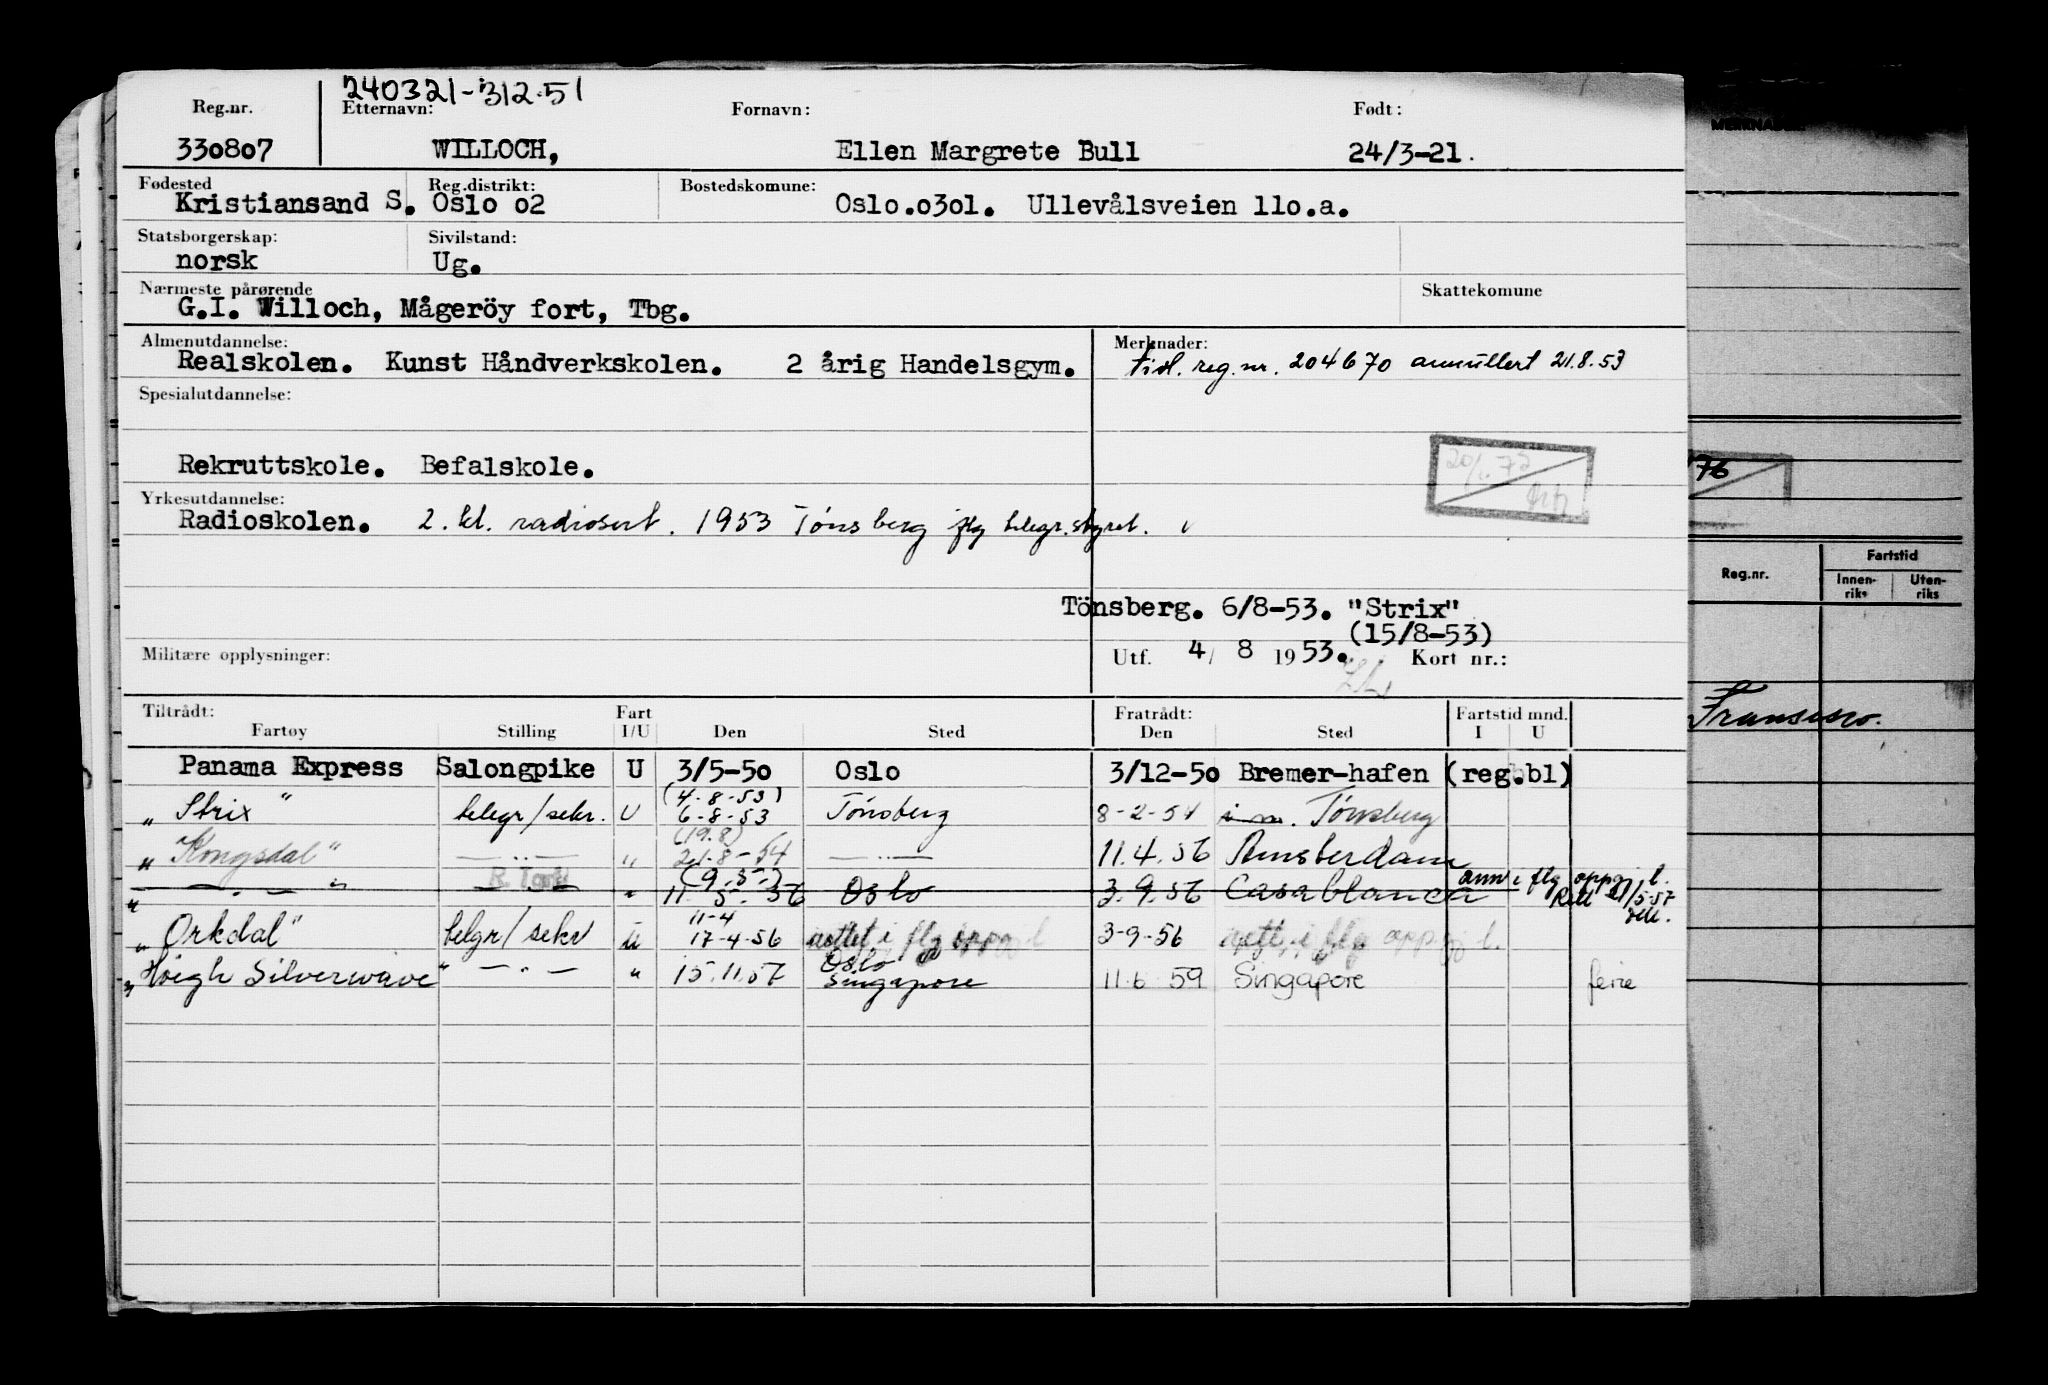 240321-312.51
Reg.nr. Etternavn: Fornavn: Født:
330807 WILLOCH, Ellen Margrete Bull 24/3-21.
Fødested Reg.distrikt: Bostedskomune:
Kristiansand S. Oslo o2 Oslo.o3ol. Ullevålsveien llo.a.
Statsborgerskap: Sivilstand:
norsk Ug.
Nærmeste pårørende Skattekomune
G.I. Willoch, Mågeröy fort, Tbg.
Almenutdannelse: Merknader:
Realskolen. Kunst Håndverkskolen. 2 årig Handelsgym. tidl. reg.nr. 204670 annullert 21.8.53
Spesialutdannelse:
Rekruttskole. Befalskole.
Yrkesutdannelse:
Radioskolen. 2. kl. radiosert. 1953 Tönsberg flg telegr.styret.
Tönsberg. 6/8-53. "Strix"
(15/8-53)
Militære opplysninger: Utf. 4/ 8 1953. Kort nr.:
Tiltrådt: Fart Fratrådt: Fartstid mnd.
Fartøy Stilling I/U Den Sted Den Sted I U
Panama Express Salongpike U 3/5-5o Oslo 3/12-5o Bremer-hafen (reg.bl)
(4-8-53)
„ Strix " telegr/sekr. U 6-8-53 Tönsberg 8-2-54 Tönsberg
(19.8)
„ Kongsdal" — „ — „ 21.8-54 — „ — 11.4.56 Amsterdam
(9.5.)
„ — „ — " " 11.5.56 Oslo 3.9.56 Casablanca ann i flg oppg
11-4
„ Orkdal" telgr/sekr U 17-4-56 rettet i flg oppg 3-9-56 rett. i flg oppg
Oslo
„ Höegh Silverwave" — „ — " 15.11.57 Singapore 11.6 59 Singapore ferie
76
Reg.nr. Fartstid
Innen- Uten-
riks riks
Fransisco.